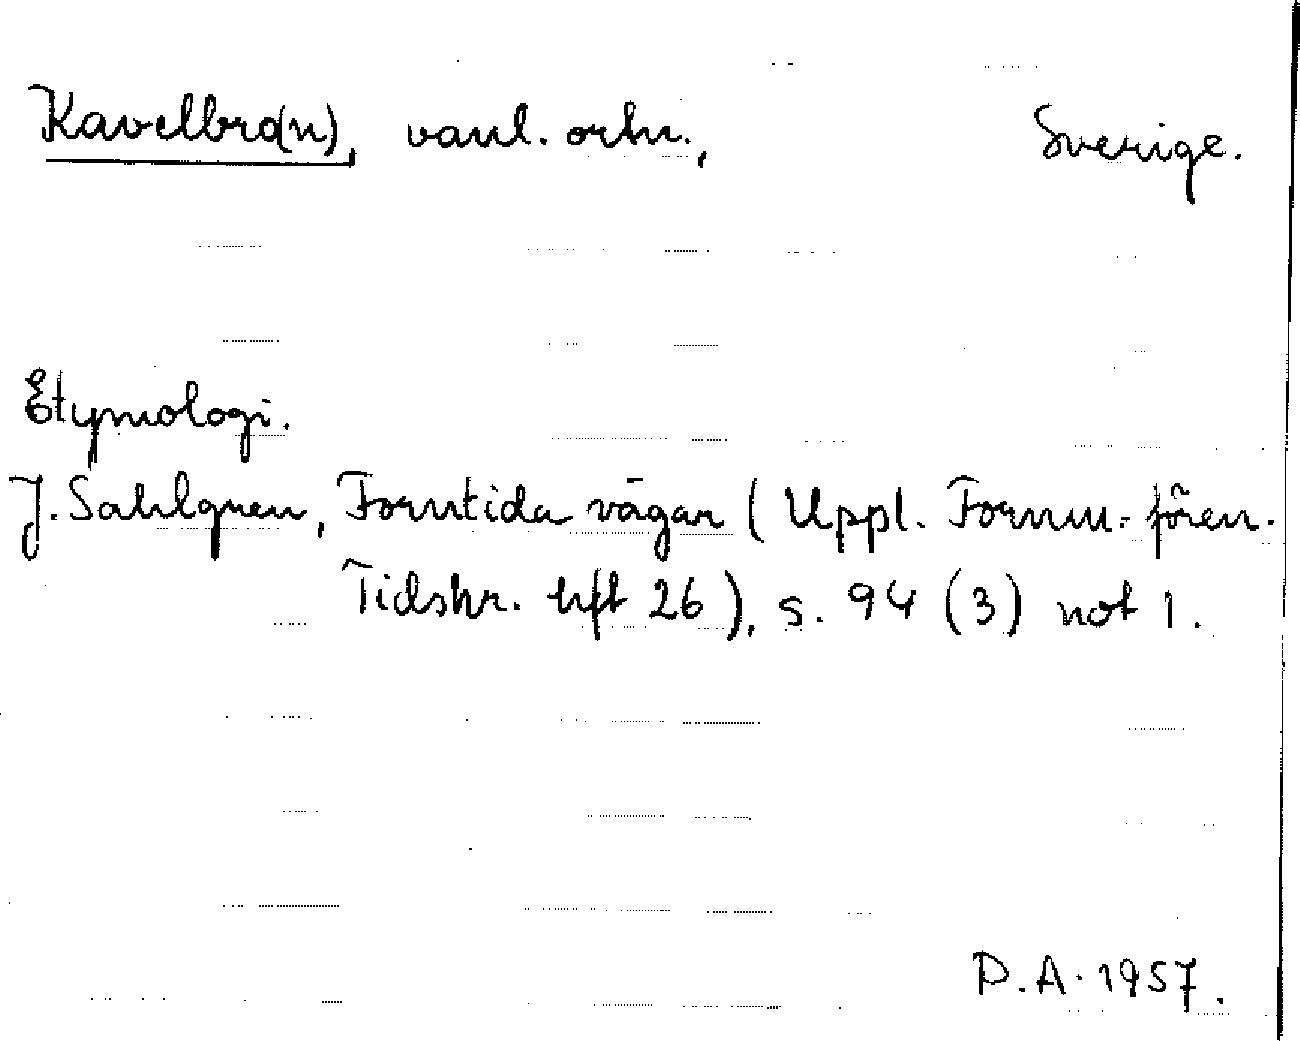 Kavelbro(n), vanl. ortn., Sverige.
Etymologi.
J. Sahlgren, Forntida vägar (Uppl. Fornm.-fören.
Tidskr. hft 26), s. 94 (3) not 1.
P.A. 1957.